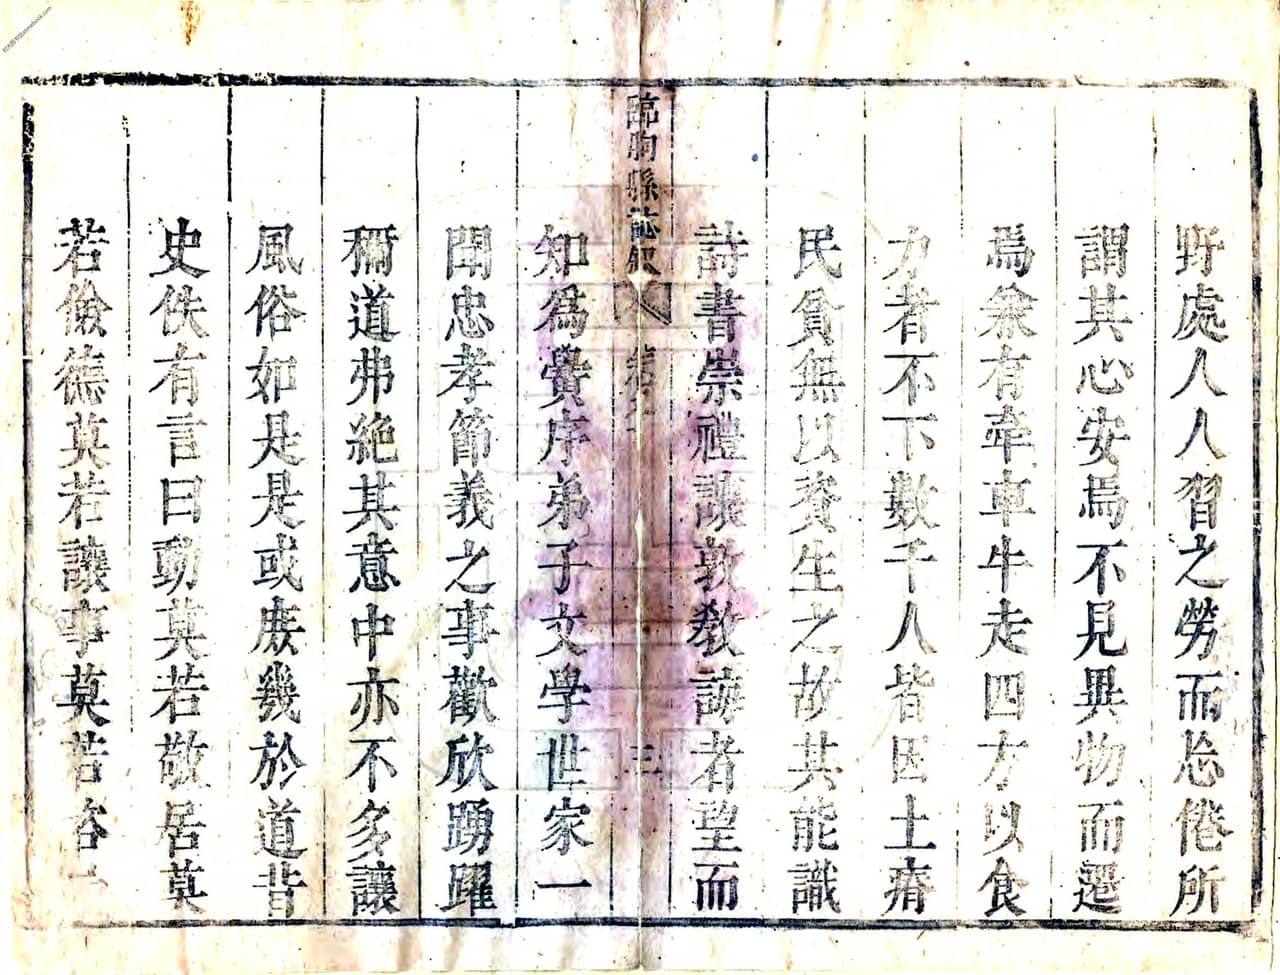 野處人人習之勞而忘倦所
謂其心安焉不見異物而遷
焉衆有牽車牛走四方以食
力者不下數千人皆因土瘠
民貧無以資生之故其能識
詩書崇禮讓敦敎誨者望而
臨朐縣誌叙
三
知爲黌序弟子文學世家一
聞忠孝節義之事歡欣踴躍
稱道弗絶其意中亦不多讓
風俗如是是或庻幾於道昔
史佚有言曰動莫若敬居莫
若儉德莫若讓事莫若咨